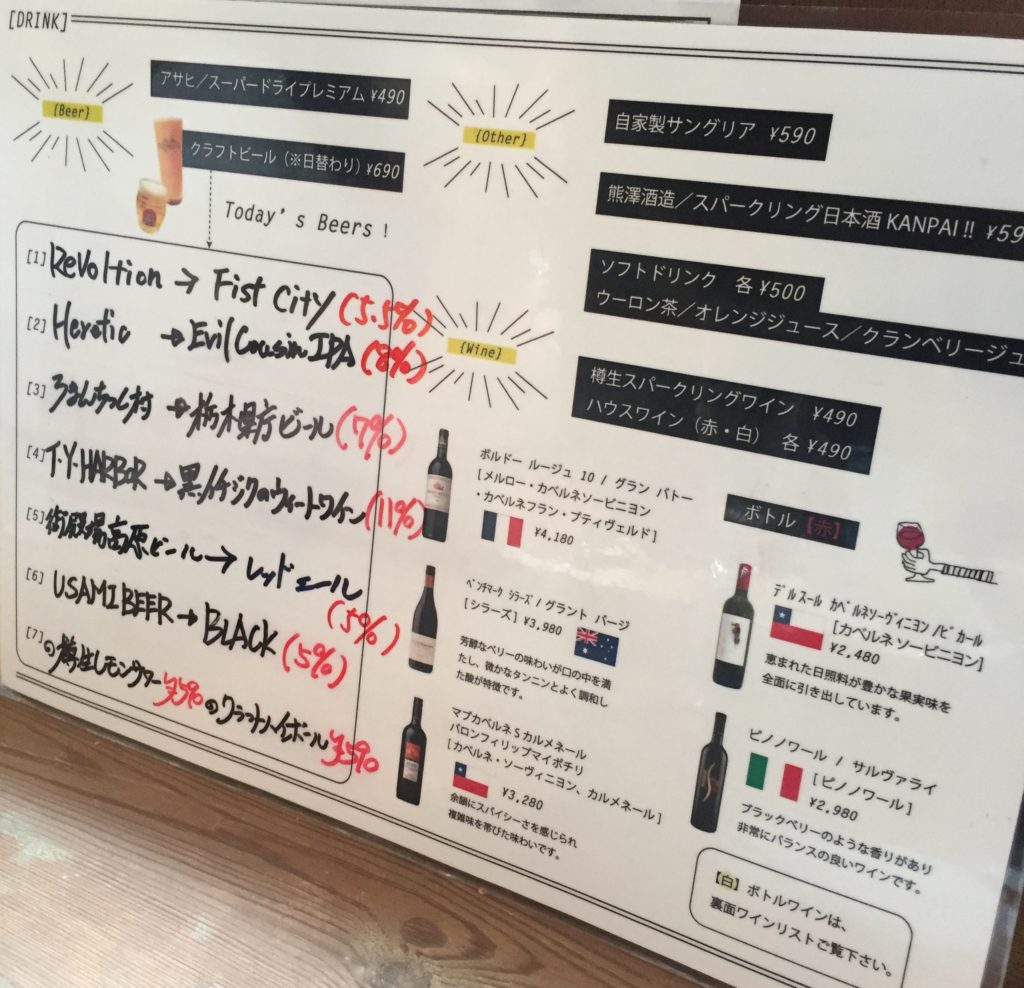 [DRINK]
{Beer}
アサヒ／スーパードライプレミアム ¥490
クラフトビール（※日替わり）¥690
Today's Beers !
[1] Revoltion → Fist City (5.5%)
[2] Heretic → Evil Cousin IPA (8%)
[3] ろまんちっく村 → 栃木県方ビール (7%)
[4] T.Y.HARBOR → 黒ノイケジクのウィートワイン (11%)
[5] 御殿場高原ビール → レッドエール (5%)
[6] USAMI BEER → BLACK (5%)
[7] の樽生レモンサワー ¥590 のクラフトハイボール ¥590
{Other}
自家製サングリア ¥590
熊澤酒造／スパークリング日本酒 KANPAI !! ¥59
ソフトドリンク 各 ¥500
ウーロン茶／オレンジジュース／クランベリージュ
{Wine}
樽生スパークリングワイン ¥490
ハウスワイン（赤・白） 各 ¥490
ボルドー ルージュ 10 / グラン バトー
[メルロー・カベルネソービニヨン
・カベルネフラン・プティヴェルド]
¥4,180
ベンチマーク シラーズ / グラント バージ
[シラーズ] ¥3,980
芳醇なベリーの味わいが口の中を満
たし、微かなタンニンとよく調和し
た酸が特徴です。
マプカベルネSカルメネール
バロンフィリップマイポチリ
[カベルネ・ソーヴィニヨン、カルメネール]
¥3,280
余韻にスパイシーさを感じられ
複雑味を帯びた味わいです。
ボトル【赤】
デルスール カベルネソーヴィニヨン / ビカール
[カベルネソービニヨン]
¥2,480
恵まれた日照料が豊かな果実味を
全面に引き出しています。
ピノノワール / サルヴァライ
[ピノノワール]
¥2,980
ブラックベリーのような香りがあり
非常にバランスの良いワインです。
【白】ボトルワインは、
裏面ワインリストご覧下さい。